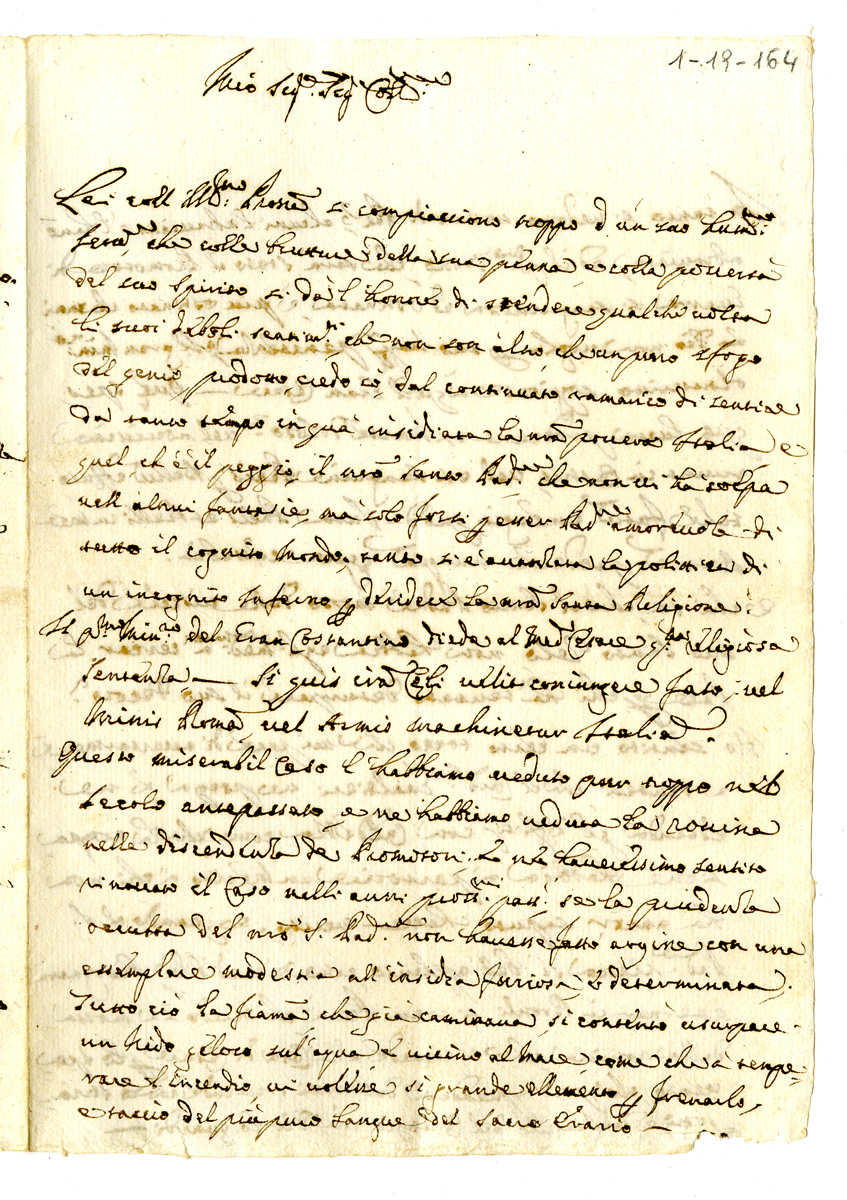 1-19-164
Mio Sig.r Sig.r
Lei coll' Ill.ma si compiacciono troppo d'un suo hum.mo
Ser.re che colle brutture della sua penna e colla povertà
del suo spirito si dà l'honore di stendere qualche volta
li suoi deboli sentim.ti, che non son altro, che un puro sfogo
del genio, prodotto, credo ciò, dal continuato ramarico di sentire
da tanto tempo in quà insidiata la nrã povera Italia, e
quel, ch'è il peggio, il nrõ Santo Pad.re che non vi hà colpa
nell'altrui fantasie, mà solo forsi per esser Pad.re amorevole di
tutto il cognito Mondo; tanto si è avanzata la politica di
un incognito Inferno per deridere la nrã Santa Religione.
Il p.mo Min.ro del Gran Costantino diede al Med. religiosa
sentenza — Si quis iram Celi velit coniungere fato, vel
Minis Romã, vel Armis machinetur Italiã.
Questo miserabil Caso l'habbiamo veduto pur troppo nel
secolo antepassato, e ne habbiamo veduta la rovina
nelle discendenza de Promotori; e ne haveressimo sentito
rinovato il Caso nelli anni pross.mi pass.ti se la prudenza
occulta del nrõ S. Pad.re non havesse fatto argine con una
essemplare modestia all'insidia furiosa, e determinata.
Tutto ciò la fiamã che già caminava, si contentò usurpare
un Nido geloso sul'aqua e vicino al Mare come che à tempe=
rare l'Incendio, vi volesse si grande ellemento per frenarlo,
e saccio del più puro sangue del sacro Erario —